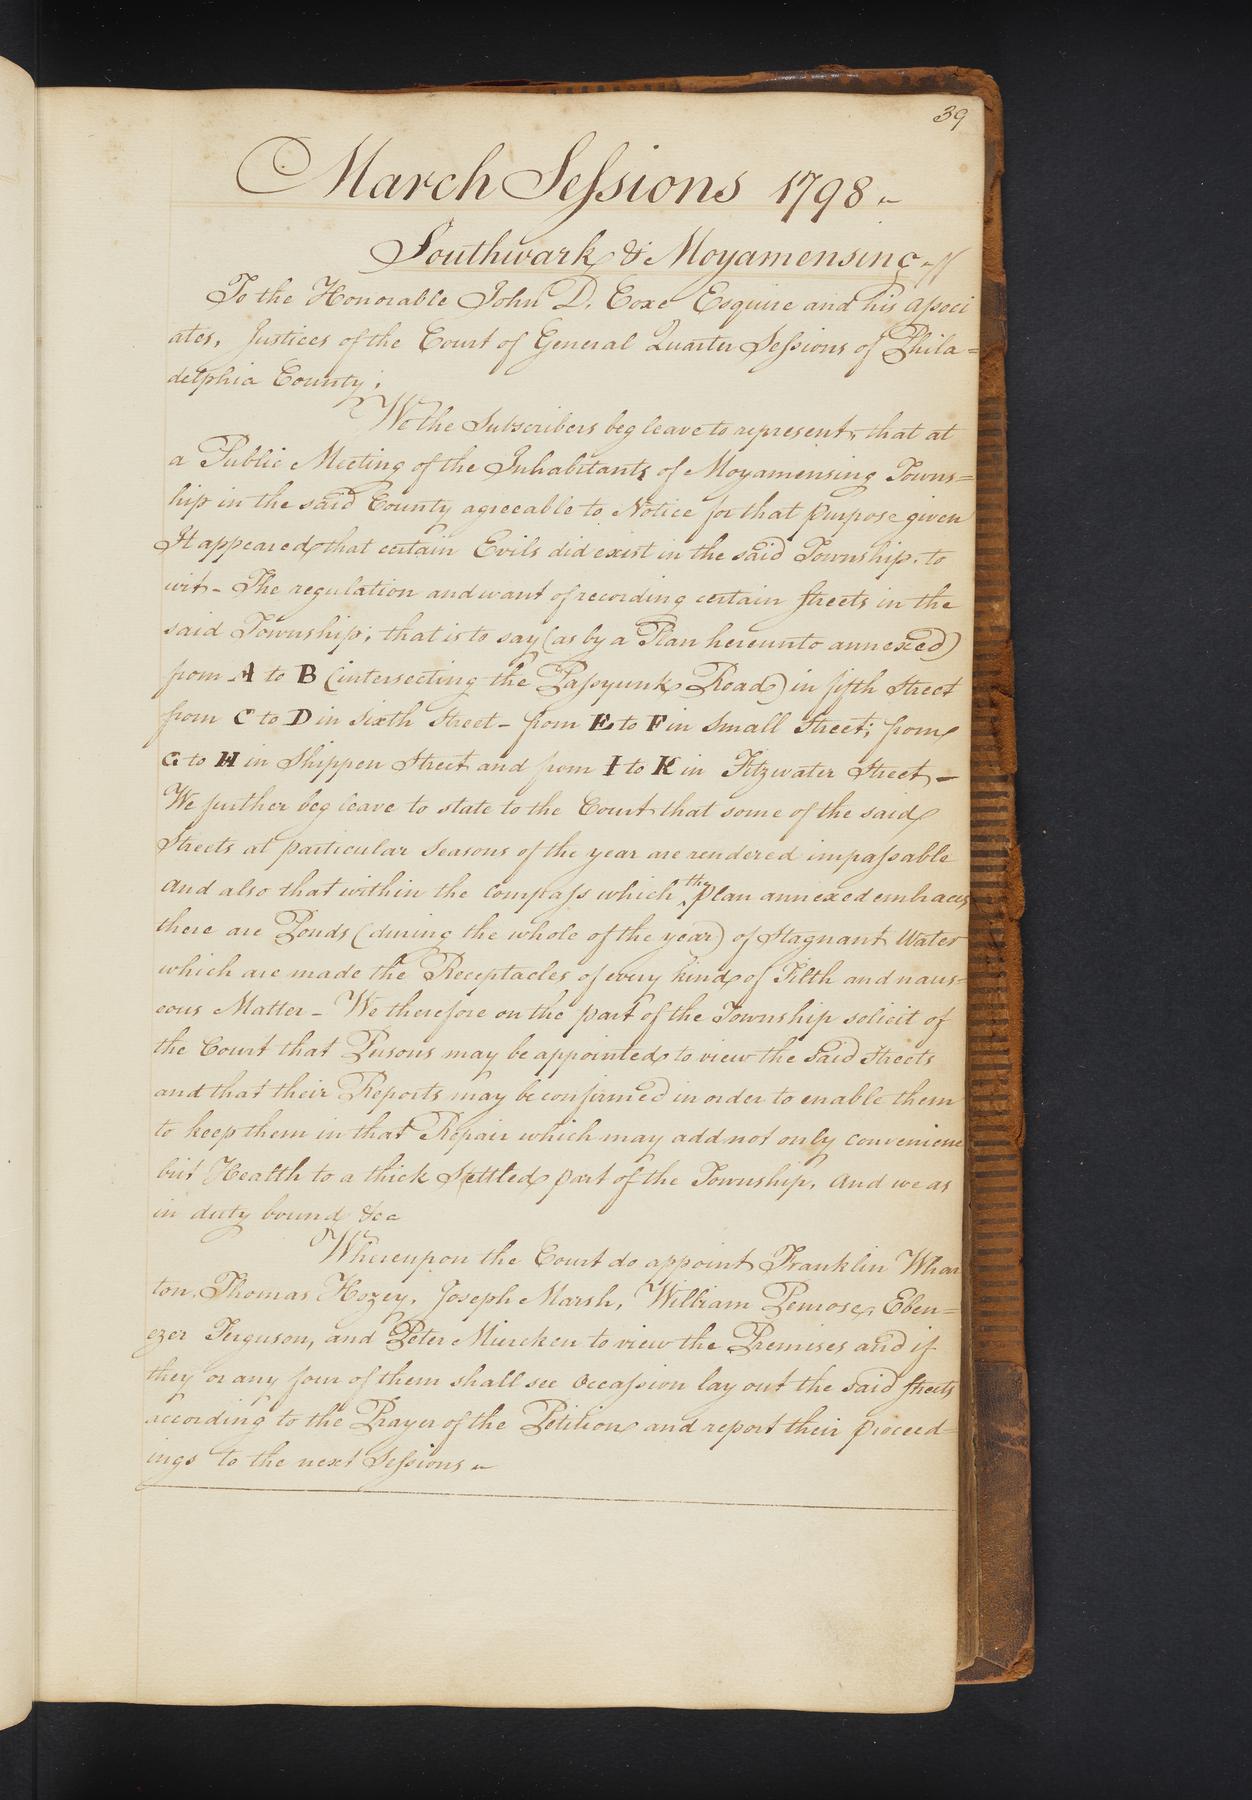 39
March Sessions 1798
Southwark & Moyamensing
To the Honorable John D. Coxe Esquire and his Associ
ates, Justices of the Court of General Quarter Sessions of Phila=
delphia County;
We the Subscribers beg leave to represent, that at
a Public Meeting of the Inhabitants of Moyamensing Towns=
hip in the said County agreeable to Notice for that purpose given
It appeared that certain Evils did exist in the said Township, to
wit - The regulation and want of recording certain streets in the
said Township; that is to say (as by a Plan hereunto annexed)
from A to B (intersecting the Passyunk Road) in fifth Street
from C to D in Sixth Street - from E to F in Small Street; from
G to H in Shippen Street and from I to K in Fitzwater Street -
We further beg leave to state to the Court that some of the said
Streets at particular Seasons of the year are rendered impassable
And also that within the Compass which the Plan annexed embraces
there are Ponds (during the whole of the year) of Stagnant Water
which are made the Receptacles of every kind of Filth and naus=
eous Matter - We therefore on the part of the Township solicit of
the Court that Persons may be appointed to view the Said Streets
and that their Reports may be confirmed in order to enable them
to keep them in that Repair which may add not only convenience
but Health to a thick Settled part of the Township, And we as
in duty bound &c
Whereupon the Court do appoint Franklin Whar
ton, Thomas Hozey, Joseph Marsh, William Penrose, Eben=
ezer Ferguson, and Peter Miercken to view the Premises and if
they or any four of them shall see Occassion lay out the said streets
according to the Prayer of the Petition and report their proceed=
ings to the next Sessions